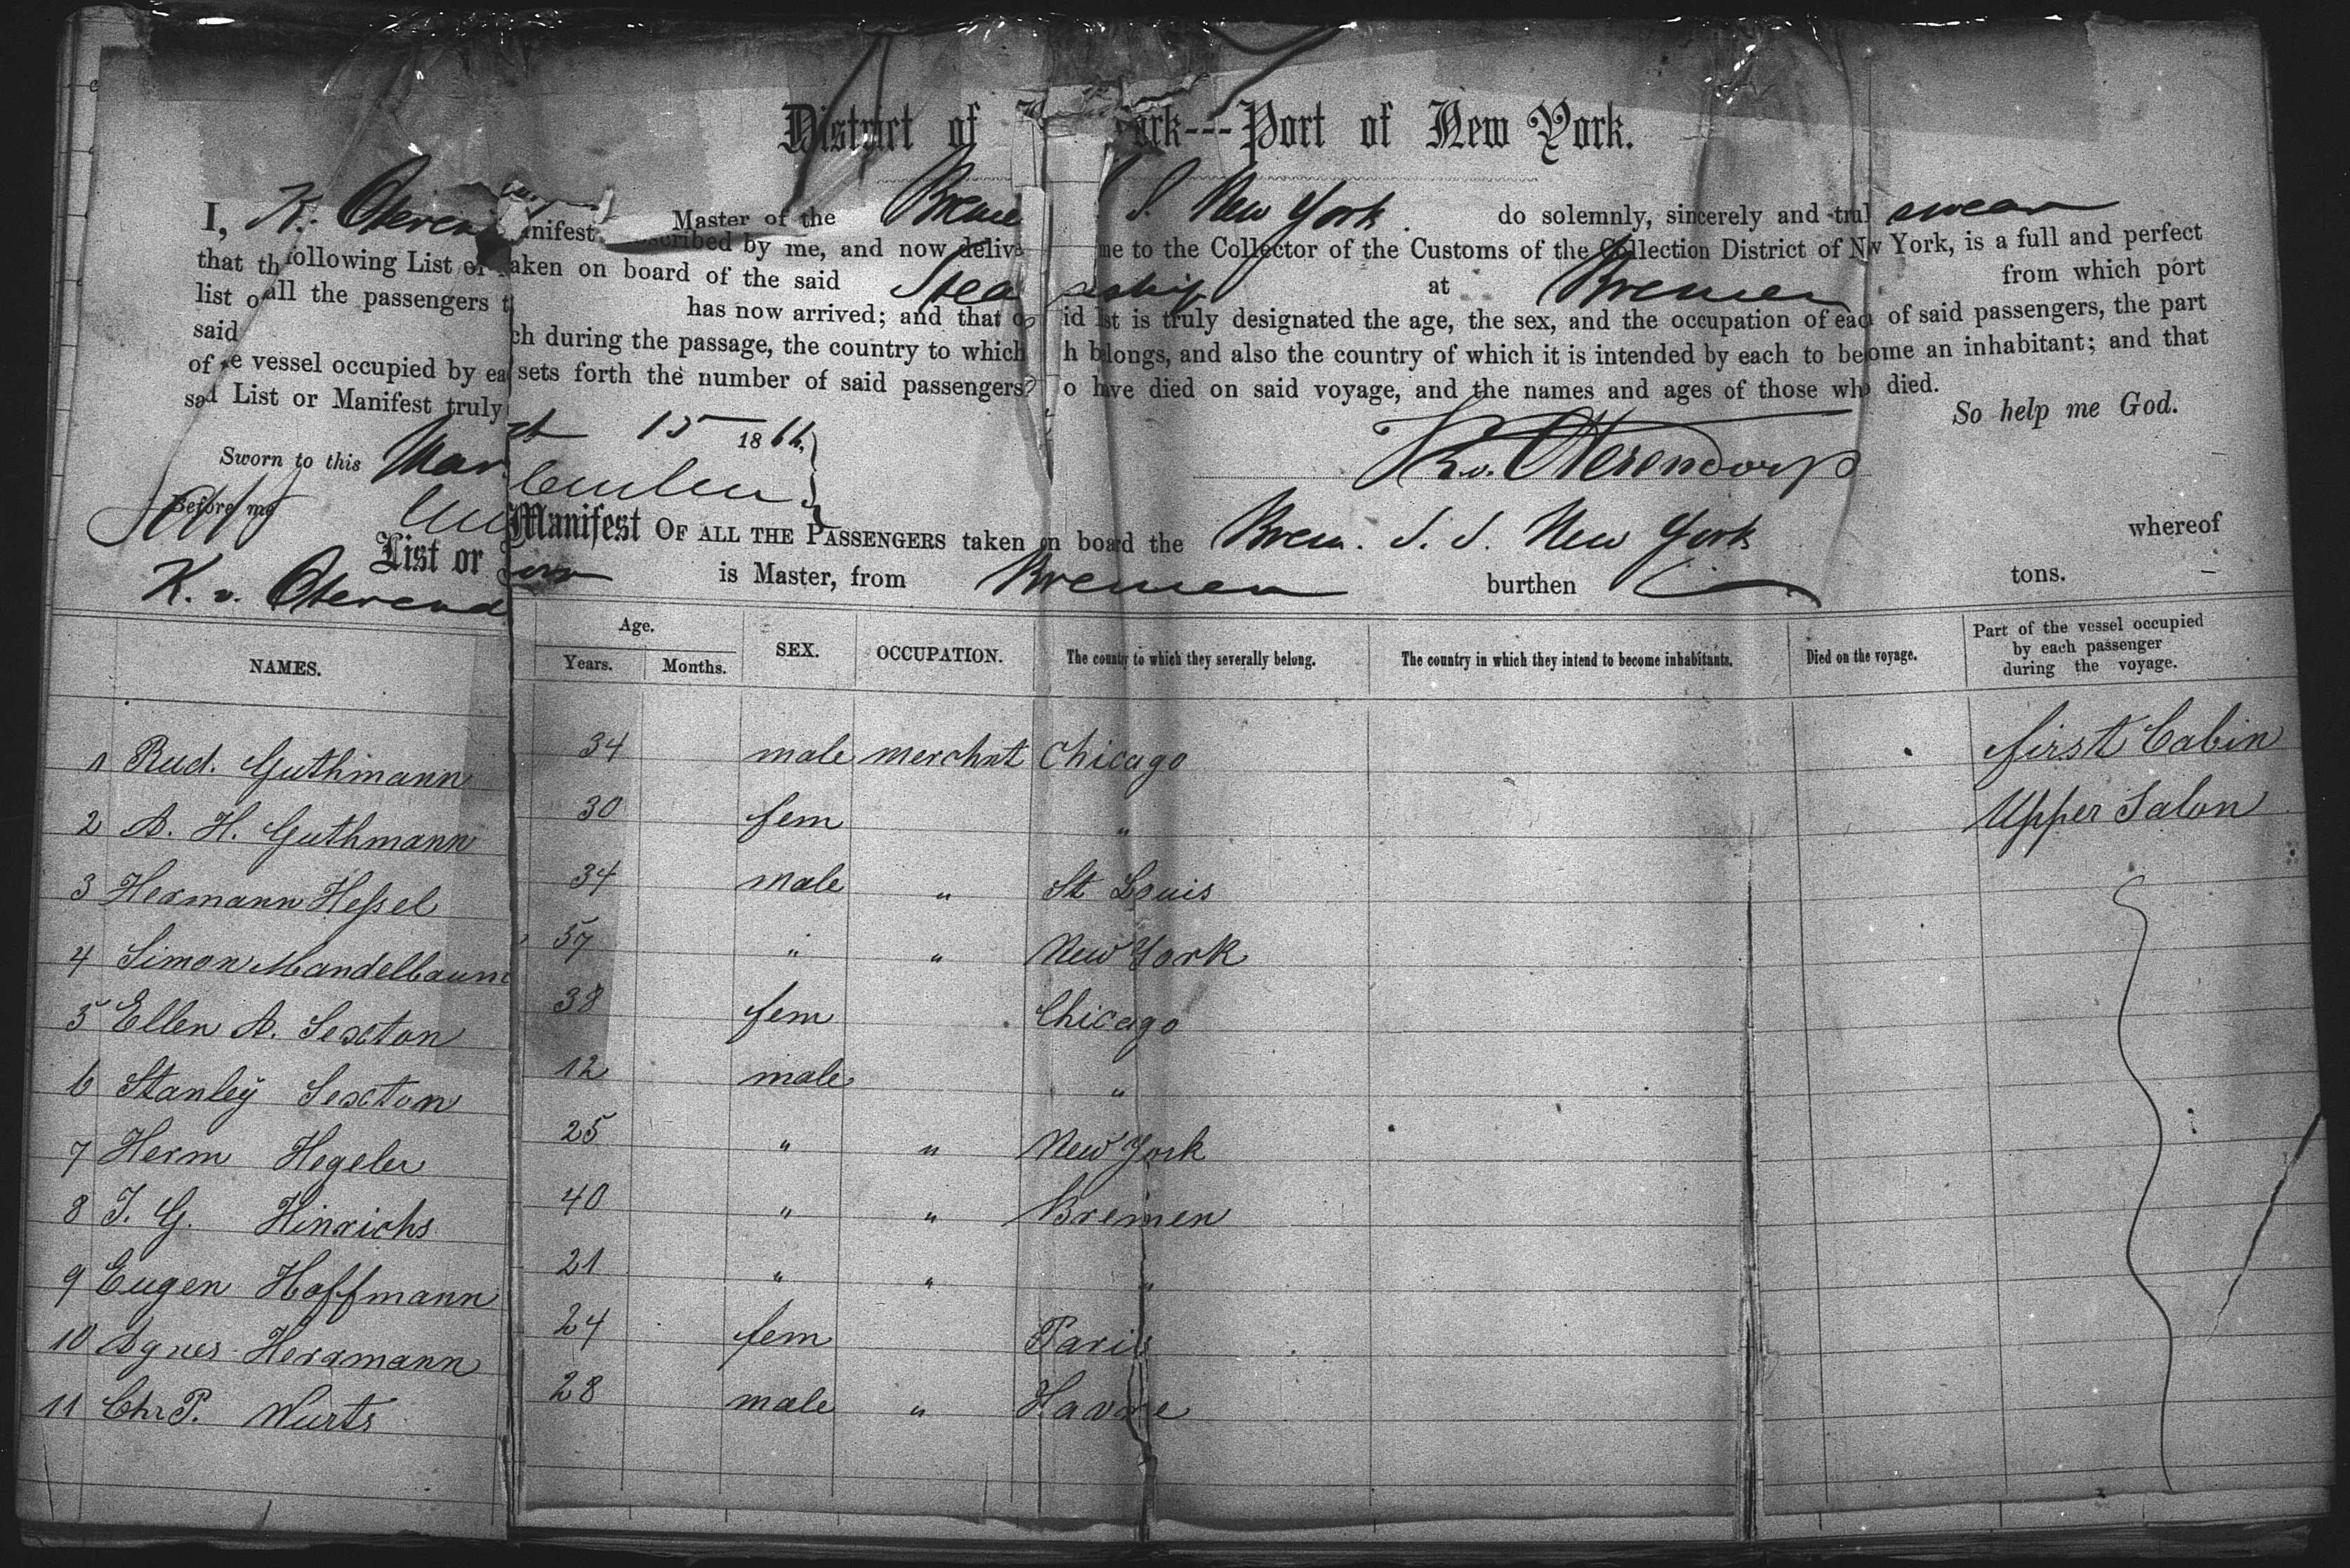 District of ork---Port of New York.
I, K. v. Oteren nifest Master of the Breme S. New York. do solemnly, sincerely and trul swear
that th following List or scribed by me, and now delive me to the Collector of the Customs of the Collection District of Nw York, is a full and perfect
list of all the passengers t aken on board of the said Stea mship at Bremen from which port
said has now arrived; and that o id list is truly designated the age, the sex, and the occupation of each of said passengers, the part
of e vessel occupied by each during the passage, the country to which h belongs, and also the country of which it is intended by each to become an inhabitant; and that
said List or Manifest truly sets forth the number of said passengers o have died on said voyage, and the names and ages of those who died.
So help me God.
Sworn to this March 15 1866
K. v. Oterendorp
Before me
List or Manifest OF ALL THE PASSENGERS taken on board the Brem. S. S. New York whereof
K. v. Oterendorp is Master, from Bremen burthen tons.
NAMES. Age. Years. Months. SEX. OCCUPATION. The country to which they severally belong. The country in which they intend to become inhabitants. Died on the voyage. Part of the vessel occupied by each passenger during the voyage.
1 Rud. Guthmann 34 male merchnt Chicago first Cabin
2 A. H. Guthmann 30 fem " Upper Salon
3 Hermann Hessel 34 male " St Louis
4 Simon Mandelbaum 37 " " New York
5 Ellen A. Sexton 38 fem Chicago
6 Stanley Sexton 12 male "
7 Herm Hegeler 25 " " New York
8 J. G. Hinrichs 40 " " Bremen
9 Eugen Hoffmann 21 " " "
10 Agnes Herrmann 24 fem Paris
11 Chr P. Wurts 28 male " Havre